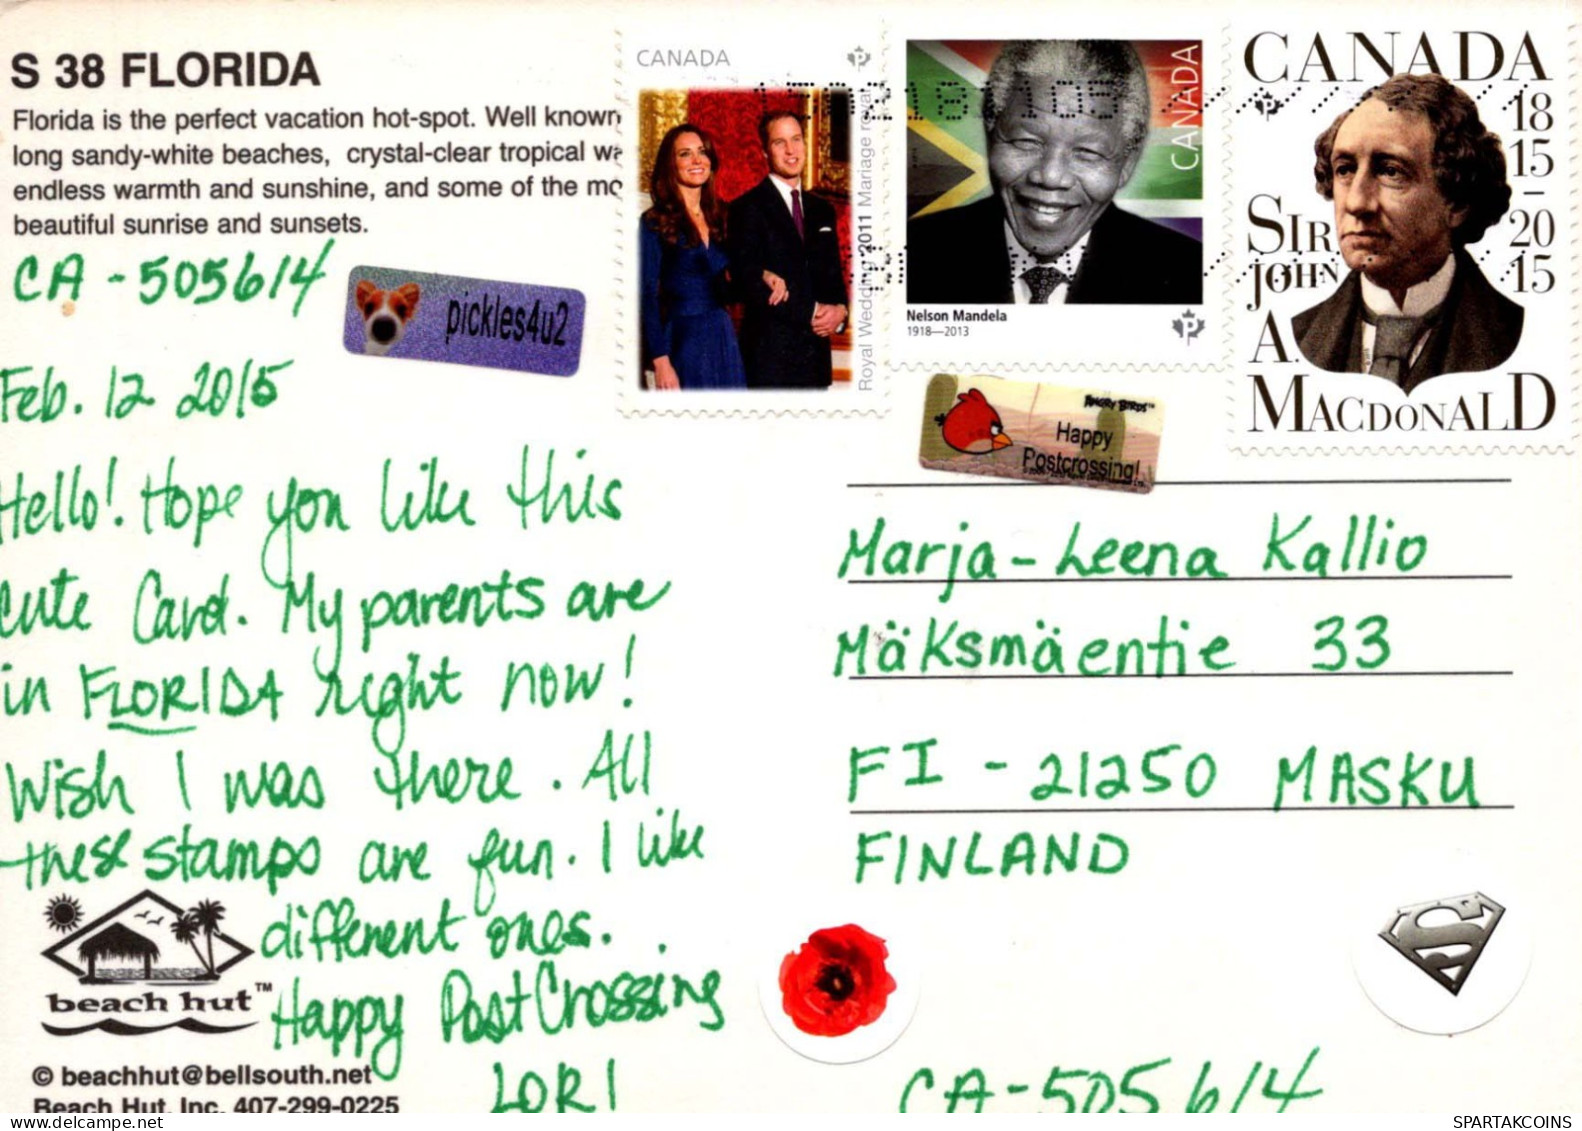 S 38 FLORIDA
Florida is the perfect vacation hot-spot. Well known
long sandy-white beaches, crystal-clear tropical wa
endless warmth and sunshine, and some of the mo
beautiful sunrise and sunsets.
CA-505614
pickles4u2
Feb. 12 2015
Hello! Hope you like this
cute Card. My parents are
in FLORIDA right now!
Wish I was there. All
these stamps are fun. I like
different ones.
Happy PostCrossing
LORI
beach hut™
© beachhut@bellsouth.net
Beach Hut, Inc. 407-299-0225
CANADA
P
Royal Wedding 2011 Mariage royal
CANADA
Nelson Mandela
1918—2013
P
CANADA
P
18
15
–
20
15
SIR
JOHN
A.
MACDONALD
ANGRY BIRDS™
Happy
Postcrossing!
Marja-Leena Kallio
Mäksmäentie 33
FI-21250 MASKU
FINLAND
S
CA-505614
SPARTAKCOINS